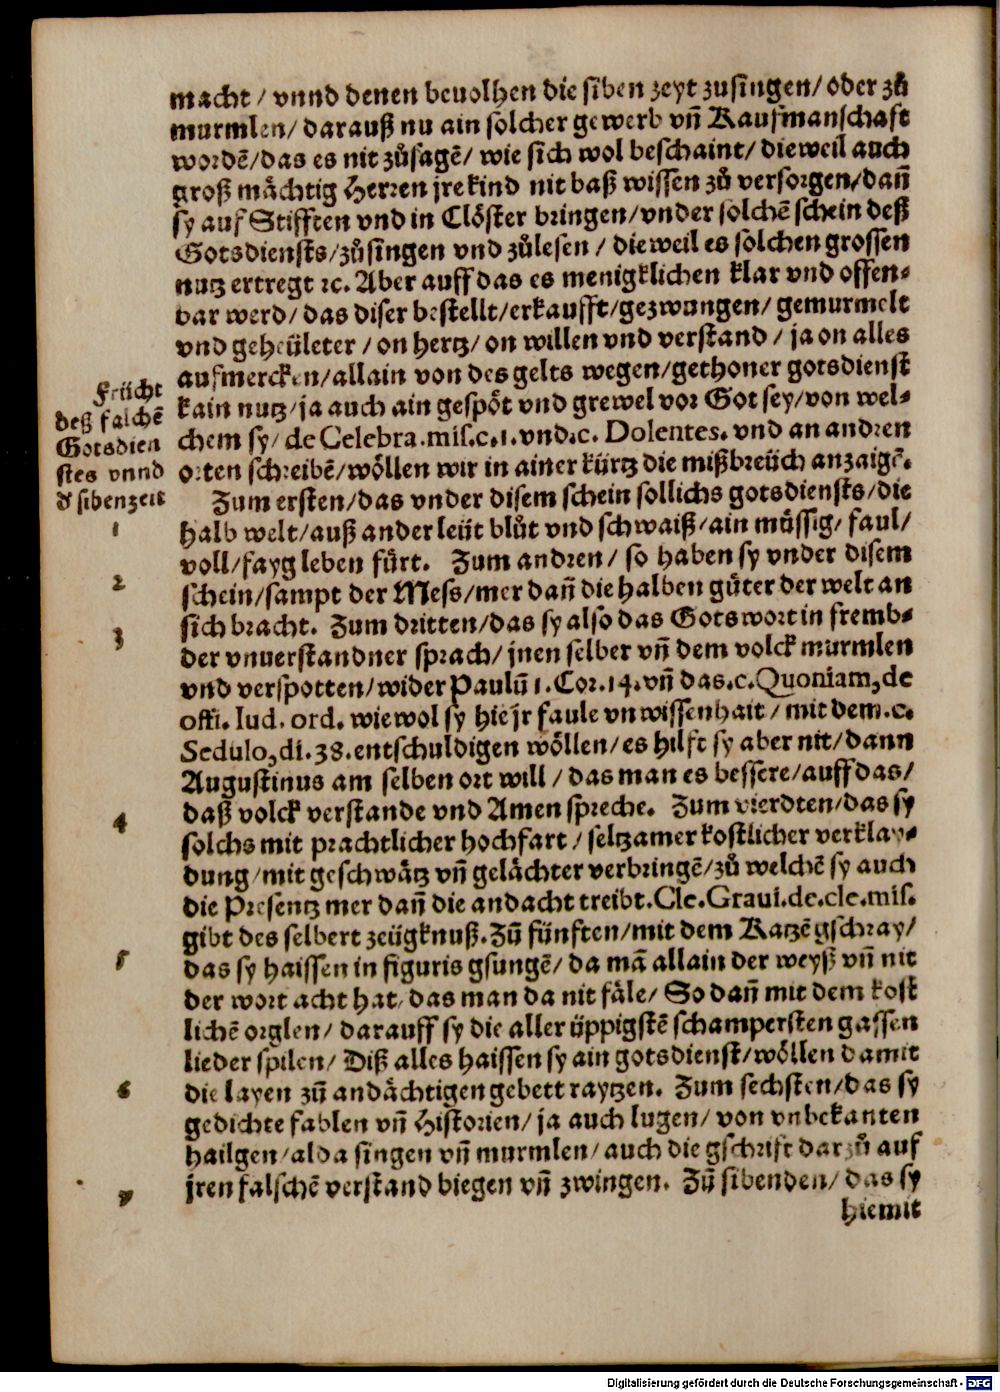 macht / vnnd denen beuolhen die siben zeyt zusingen / oder zů
murmlen / darauß nu ain solcher gewerb vñ Kaufmanschaft
wordẽ / das es nit zůsagẽ / wie sich wol beschaint / dieweil auch
groß mächtig Herren jre kind nit baß wissen zů versorgen / dañ
sy auf Stifften vnd in Clöster bringen / vnder solchẽ schein deß
Gotsdiensts / zůsingen vnd zůlesen / die weil es solchen grossen
nutz ertregt ꝛc. Aber auff das es menigklichen klar vnd offen-
bar werd / das diser bestellt / erkaufft / gezwungen / gemurmelt
vnd geheületer / on hertz / on willen vnd verstand / ja on alles
aufmercken / allain von des gelts wegen / gethoner gotsdienst
kain nutz / ja auch ain gespöt vnd grewel vor Got sey / von wel-
chem sy / de Celebra. mis. c. 1. vnd. c. Dolentes. vnd an andren
orten schreibẽ / wöllen wir in ainer kürtz die mißbreüch anzaigẽ.
Frücht
deß falchẽ
Gotsdien
stes vnnd
d' sibenzeit
Zum ersten / das vnder disem schein sollichs gotsdiensts / die
1
halb welt / auß ander leüt blůt vnd schwaiß / ain müssig / faul /
voll / fayg leben fürt. Zum andren / so haben sy vnder disem
2
schein / sampt der Mess / mer dañ die halben güter der welt an
sich bracht. Zum dritten / das sy also das Gots wort in fremb-
3
der vnuerstandner sprach / jnen selber vñ dem volck murmlen
vnd verspotten / wider Paulũ 1. Cor. 14. vñ das. c. Quoniam, de
offi. Iud. ord. wiewol sy hie jr faule vnwissenhait / mit dem. c.
Sedulo, di. 38. entschuldigen wöllen / es hilft sy aber nit / dann
Augustinus am selben ort will / das man es bessere / auff das /
daß volck verstande vnd Amen spreche. Zum vierdten / das sy
4
solchs mit prachtlicher hochfart / seltzamer kostlicher verklay-
dung / mit geschwätz vñ gelächter verbringẽ / zů welchẽ sy auch
die Presentz mer dañ die andacht treibt. Cle. Graui. de. cle. mis.
gibt des selbert zeügknuß. Zũ fünften / mit dem Katzẽ gschray /
5
das sy haissen in figuris gsungẽ / da mã allain der weyß vñ nit
der wort acht hat / das man da nit fäle / So dañ mit dem kost
lichẽ orglen / darauff sy die aller üppigstẽ schampersten gassen
lieder spilen / Diß alles haissen sy ain gotsdienst / wöllen damit
die layen zũ andächtigen gebett raytzen. Zum sechsten / das sy
6
gedichte fablen vñ Historien / ja auch lugen / von vnbekanten
hailgen / alda singen vñ murmlen / auch die gschrift dar zů auf
jren falschẽ verstand biegen vñ zwingen. Zũ sibenden / das sy
7
hiemit
Digitalisierung gefördert durch die Deutsche Forschungsgemeinschaft - DFG